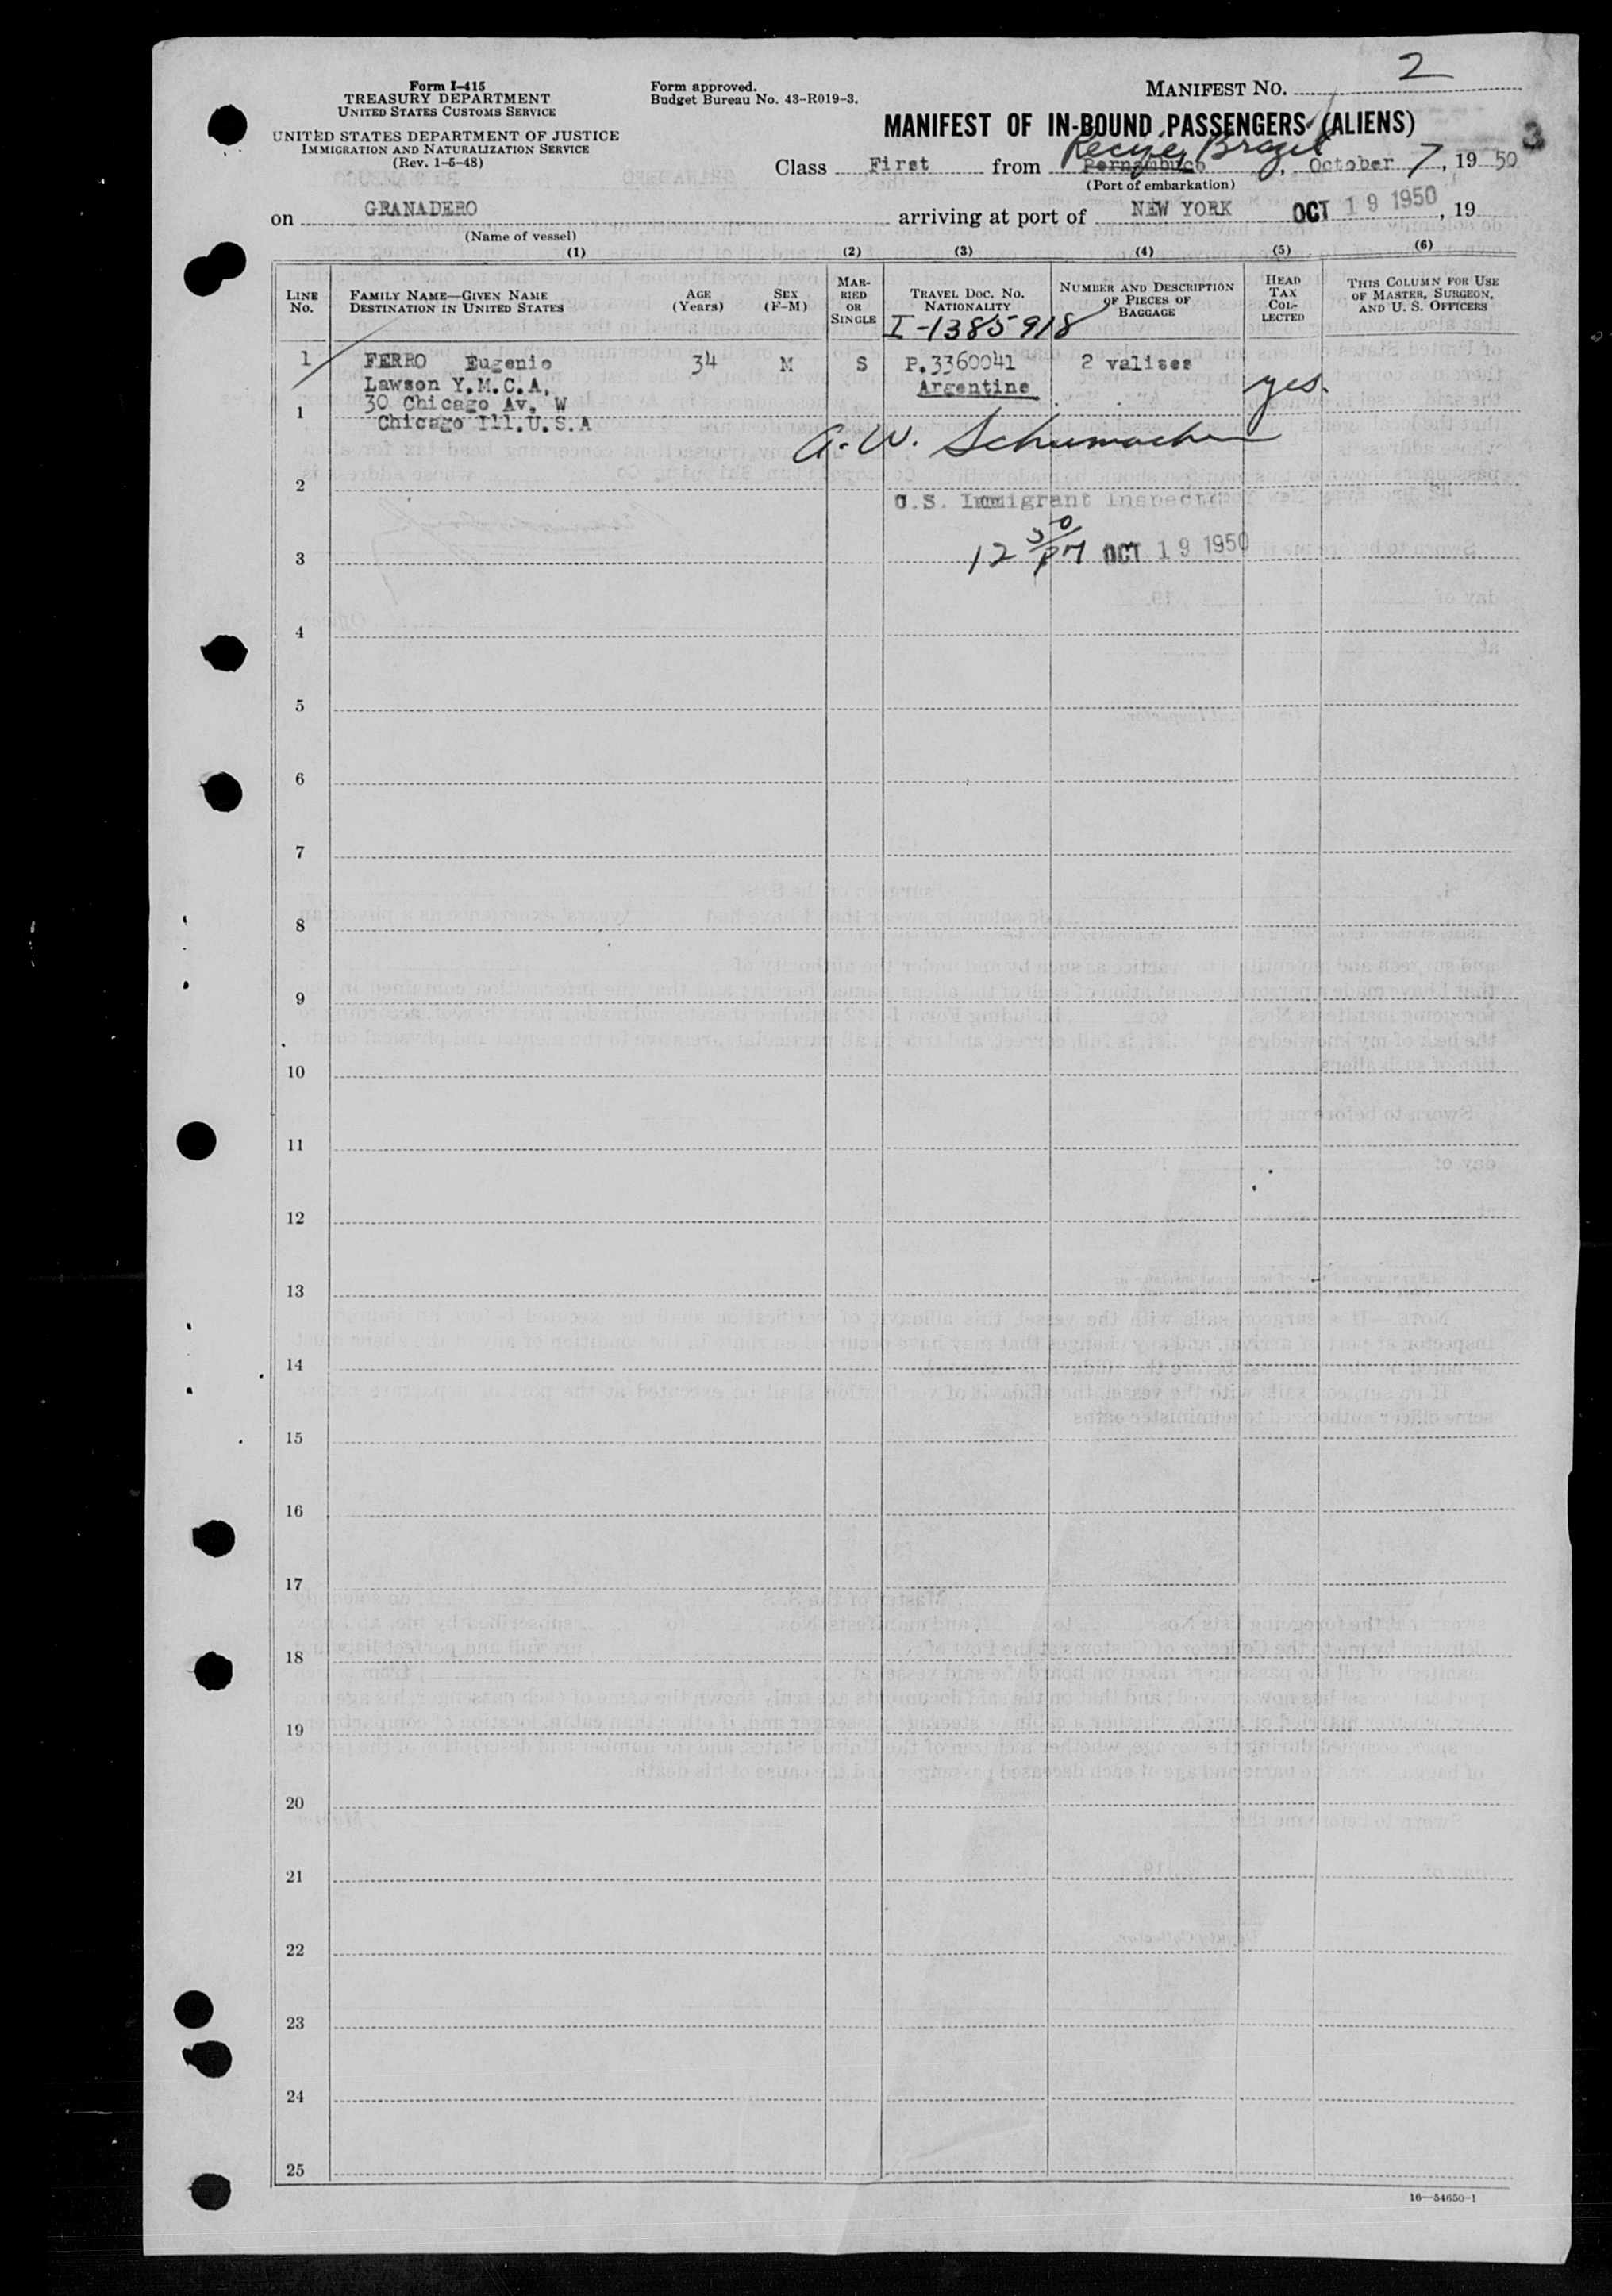 Form I-415
TREASURY DEPARTMENT
UNITED STATES CUSTOMS SERVICE
UNITED STATES DEPARTMENT OF JUSTICE
IMMIGRATION AND NATURALIZATION SERVICE
(Rev. 1-5-48)
Form approved.
Budget Bureau No. 43-R019-3.
MANIFEST NO. 2
MANIFEST OF IN-BOUND PASSENGERS (ALIENS)
3
Brazil
Class First from Pernambuco, October 7, 1950
(Port of embarkation)
on GRANADERO arriving at port of NEW YORK OCT 19 1950, 19
(Name of vessel)
(1) (2) (3) (4) (5) (6)
LINE No.
FAMILY NAME—GIVEN NAME
DESTINATION IN UNITED STATES
AGE (Years)
SEX (F-M)
MARRIED OR SINGLE
TRAVEL DOC. NO.
NATIONALITY
NUMBER AND DESCRIPTION OF PIECES OF BAGGAGE
HEAD TAX COLLECTED
THIS COLUMN FOR USE OF MASTER, SURGEON, AND U. S. OFFICERS
I-1385918
1 FERRO Eugenio 34 M S P.3360041 2 valises
Lawson Y.M.C.A. Argentine yes.
30 Chicago Av. W
1 Chicago Ill.U.S.A
A. W. Schumacher
2
U.S. Immigrant Inspector
3 12 50 PM OCT 19 1950
4
5
6
7
8
9
10
11
12
13
14
15
16
17
18
19
20
21
22
23
24
25
16—54650-1